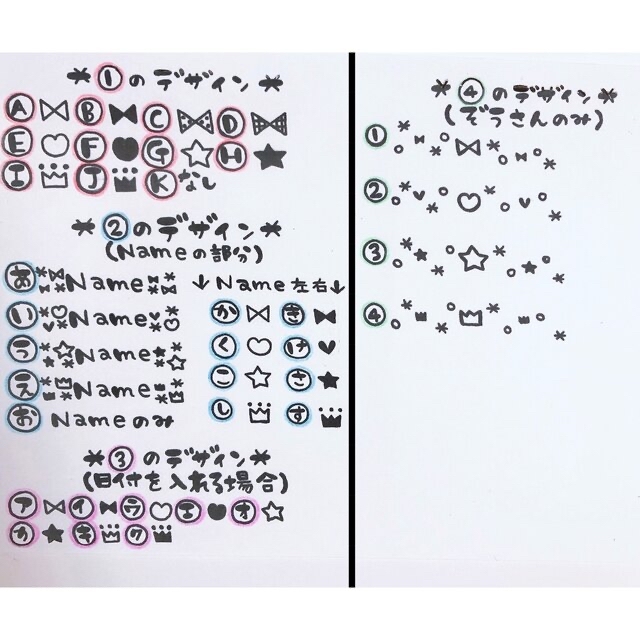 * ① のデザイン *
Ⓐ Ⓑ Ⓒ Ⓓ
Ⓔ Ⓕ Ⓖ Ⓗ
Ⓘ Ⓙ Ⓚ なし
* ② のデザイン *
(Nameの部分)
あ Name
い Name
う Name
え Name
お Nameのみ
↓Name左右↓
か き
く け
こ さ
し す
* ③ のデザイン *
(日付を入れる場合)
ア イ ウ エ オ
カ キ ク
* ④ のデザイン *
(ぞうさんのみ)
①
②
③
④